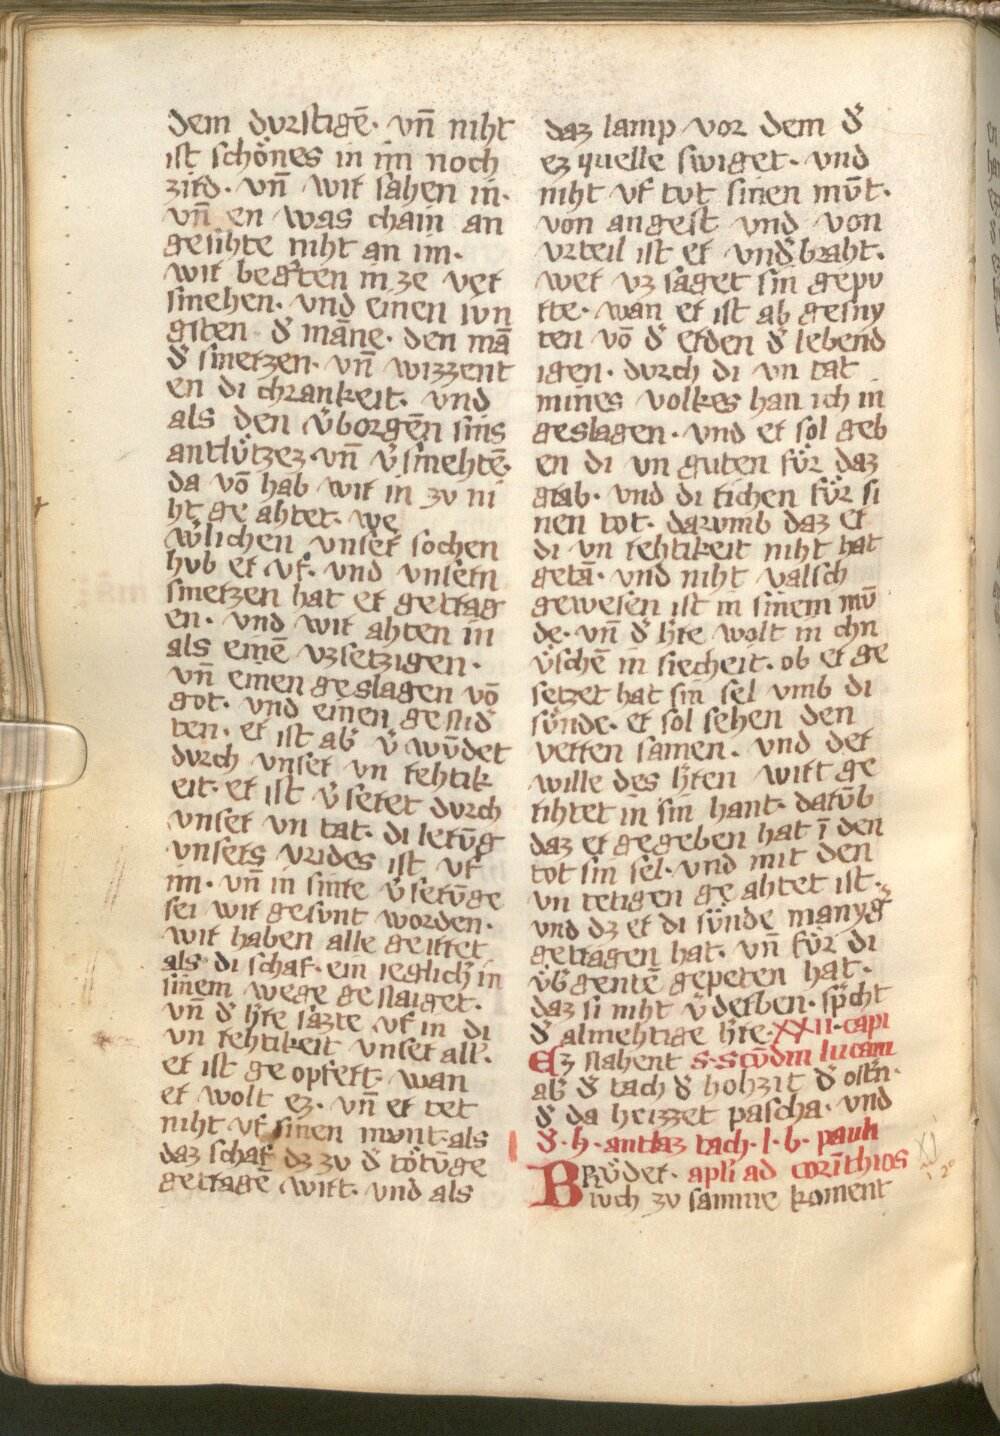 dem durstigē· vn̄ niht
ist schönes in im noch
zird· vn̄ wir sahen in·
vn̄ en was chain an
gesihte niht an im·
wir beg̾ten in ze ver
smehen· vnd einen ivn
gsten d̾ māne· den mā
d̾ smerzen· vn̄ wizzent
en di chrankeit· vnd
als den v̾borgēn sins
antlützez· vn̄ v̾smehtē·
da vō hab wir in zv ni
ht ge ahtet· we
wͤlichen vnser sochen
hvb er vf· vnd vnsern
smerzen hat er getrag
en· vnd wir ahten in
als einē vzsetzigen·
vn̄ einen geslagen vō
got· vnd einen genid̾
ten· er ist ab̾ v̾wvndet
dvrch vnser vn rehtik
eit· er ist v̾seret dvrch
vnser vn tat· di lerv̄g
vnsers vrides ist vf
im· vn̄ in sinre v̾serv̄ge
sei wir gesvnt worden·
wir haben alle geirret
als di schaf· ein ieglich̾ in
sinem wege geslaiget·
vn̄ d̾ h̾re sazte vf in di
vn rehtikeit vnser all̾·
er ist ge opfert· wan
er wolt ez· vn̄ er tet
niht vf sinen mvnt· als
daz schaf dz zv d̾ tötv̄ge
getragē wirt· vnd als
daz lamp vor dem d̾
ez quelle swiget· vnd
niht vf tvt sinen mv̄t·
von angest vnd von
vrteil ist er vnd̾braht·
wer vz saget sin gepv
rte· wan er ist ab gesny
ten vō d̾ erden d̾ lebend
igen· dvrch di vn tat
mines volkes han ich in
geslagen· vnd er sol geb
en di vn guten für daz
grab· vnd di richen für si
nen tot· darvmb daz er
di vn rehtikeit niht hat
getā· vnd niht valsch
gewesen ist in sinem mv̄
de· vn̄ d̾ h̾re wolt in chn
v̾schē in siecheit· ob er ge
setzet hat sin sel vmb di
sünde· er sol sehen den
verren samen· vnd der
wille des h̾ren wirt ge
rihtet in sin hant· darv̄b
daz er gegeben hat ī den
tot sin sel· vnd mit den
vn tetigen ge ahtet ist·
vnd dz er di sünde manyg̾
getragen hat· vn̄ für di
vb̾gentē gepeten hat·
daz si niht v̾derben· sp̾cht
d̾ almehtige h̾re· XXII· capi
Ez nahent S· Scv̄dm lucam
ab̾ d̾ tach d̾ hohzit d̾ ostn̾·
d̾ da heizzet pascha· vnd
d̾· h· antlaz tach· l· b· pauli
Brvder· apl̄i ad corīthios
Iwch zv samme koment